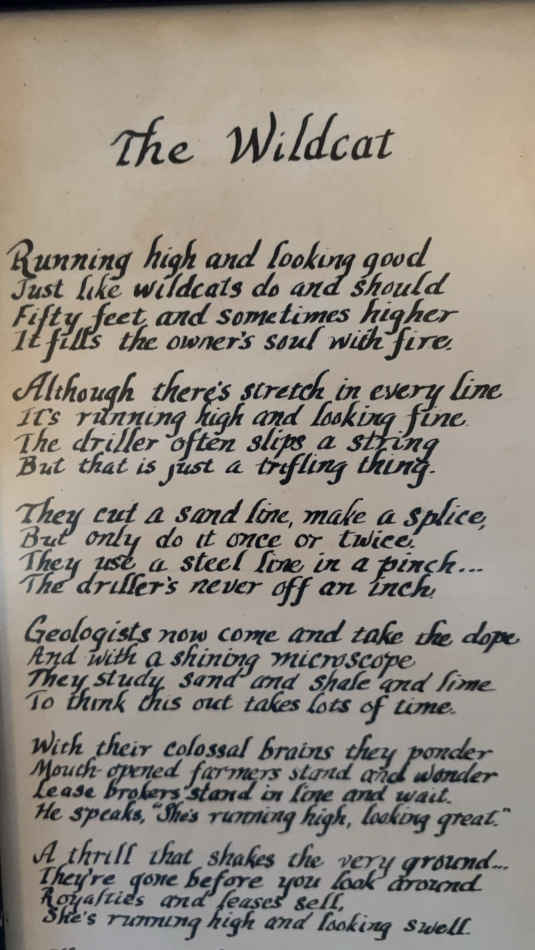 The Wildcat
Running high and looking good
Just like wildcats do and should
Fifty feet, and sometimes higher
It fills the owner's soul with fire.
Although there's stretch in every line
It's running high and looking fine.
The driller often slips a string
But that is just a trifling thing.
They cut a sand line, make a splice,
But only do it once or twice.
They use a steel line in a pinch...
The driller's never off an inch.
Geologists now come and take the dope
And with a shining microscope
They study sand and shale and lime
To think this out takes lots of time.
With their colossal brains they ponder
Mouth-opened farmers stand and wonder
Lease brokers stand in line and wait.
He speaks, "She's running high, looking great."
A thrill that shakes the very ground...
They're gone before you look around.
Royalties and leases sell,
She's running high and looking swell.